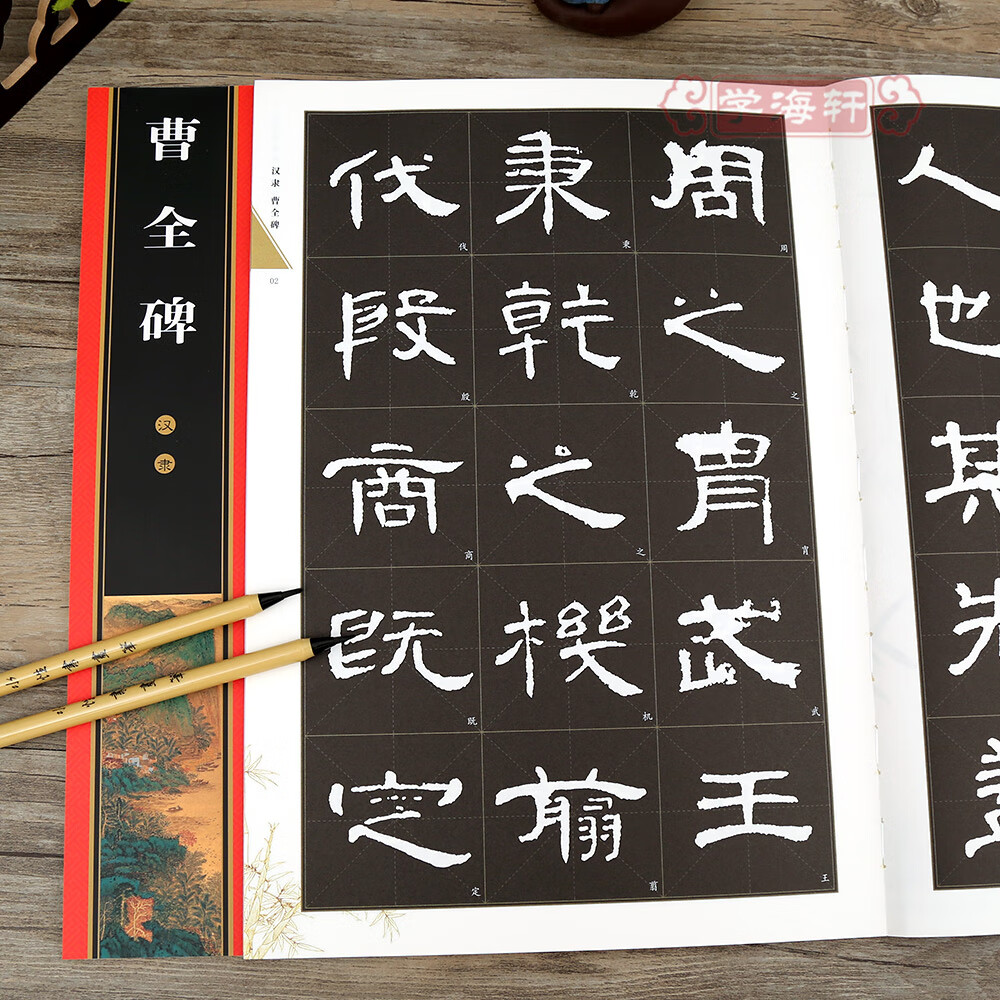 学海轩
曹全碑
汉隶
汉隶 曹全碑
02
人也其先
周之胄武王
周
之
胄
武
王
秉乾之機翦
秉
乾
之
机
翦
伐殷商既定
伐
殷
商
既
定